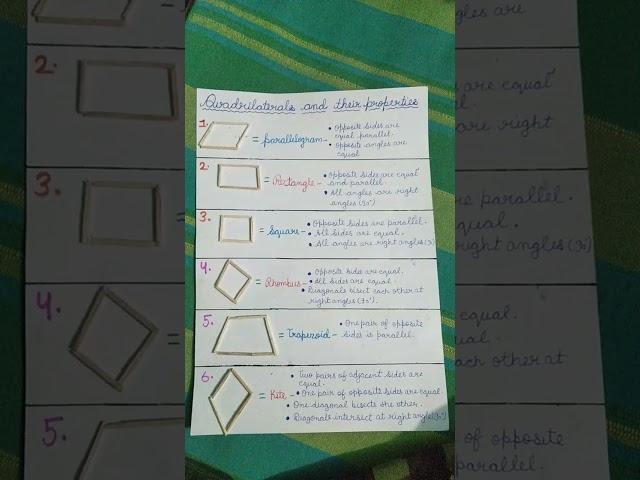 Quadrilaterals and their properties
1. = Parallelogram - • Opposite sides are
equal parallel.
• Opposite angles are
equal
2. = Rectangle - • Opposite sides are equal
and parallel.
• All angles are right
angles (90°)
3. = Square - • Opposite sides are parallel.
• All sides are equal.
• All angles are right angles
4. = Rhombus - • Opposite sides are equal.
• All sides are equal.
• Diagonals bisect each other at
right angles (90°).
5. = Trapezoid - • One pair of opposite
sides is parallel.
6. = Kite - • Two pairs of adjacent sides are
equal.
• One pair of opposite sides are equal
• One diagonal bisects the other.
• Diagonals intersect at right angle
2.
3.
4.
5.
gles are
are equal
are right
parallel.
equal.
right angles
equal.
equal.
each other at
of opposite
parallel.